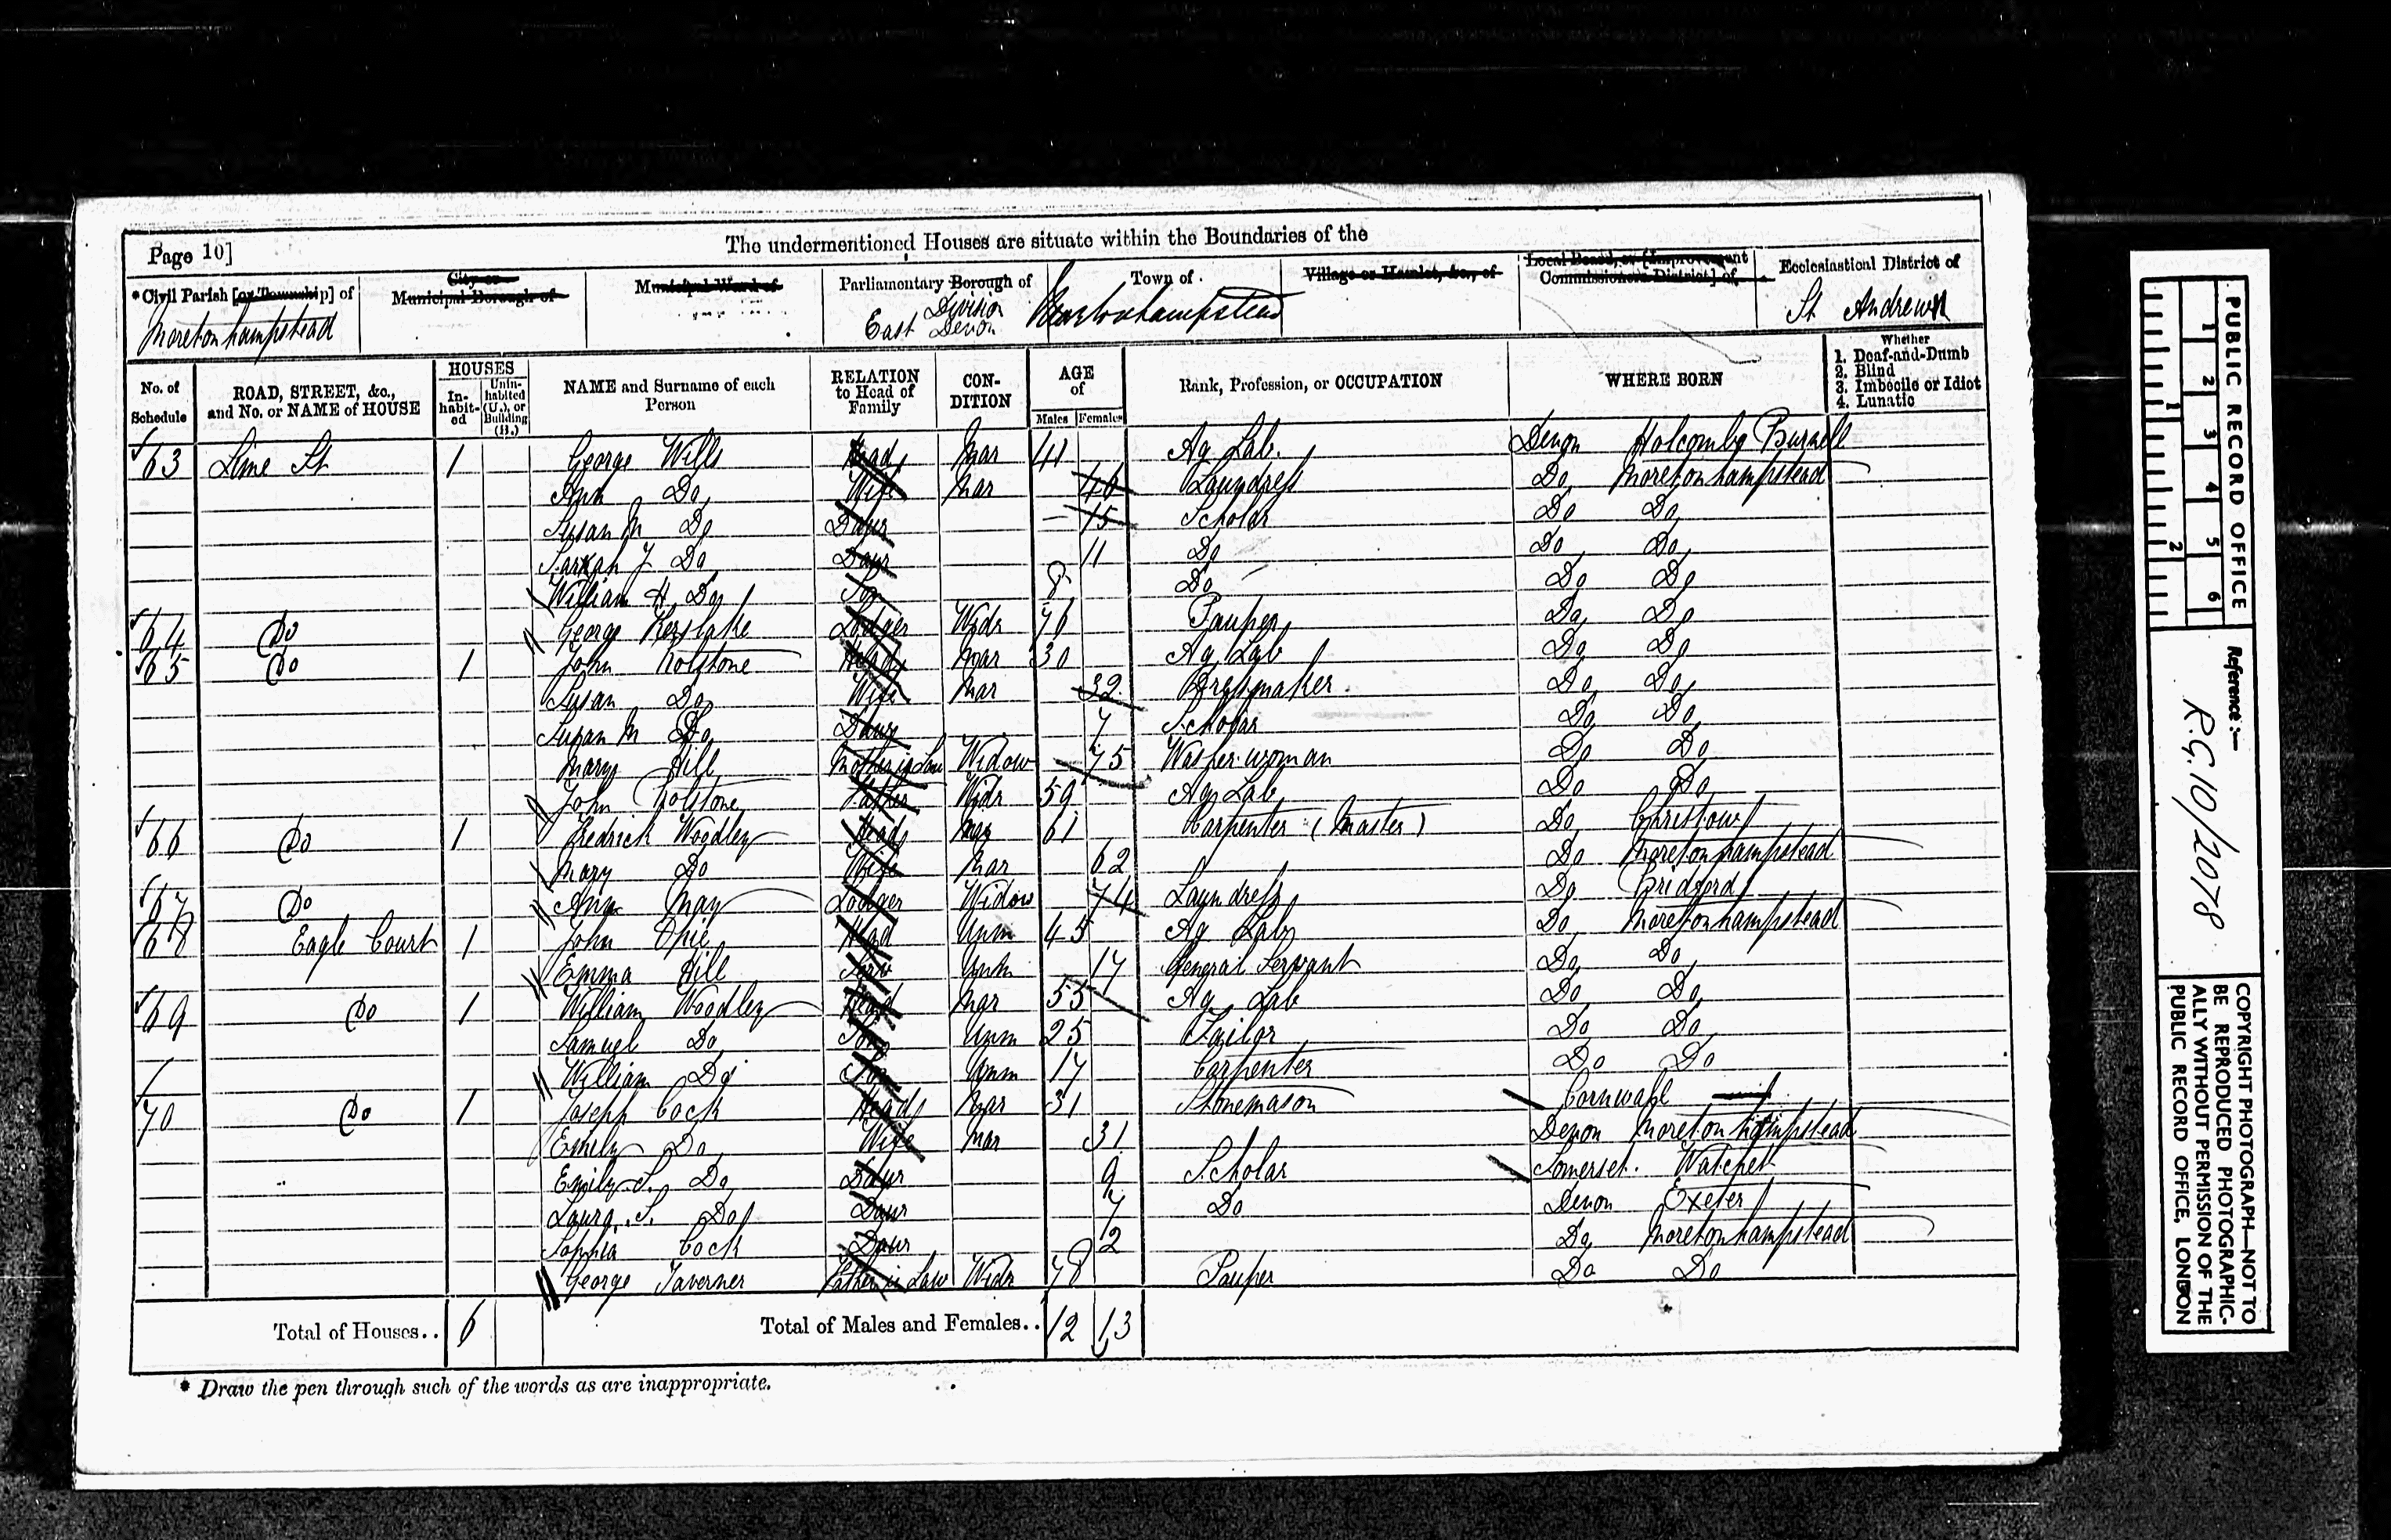 Page 10]
The undermentioned Houses are situate within the Boundaries of the
*Civil Parish [or Township] of
City or Municipal Borough of
Municipal Ward of
Parliamentary Borough of
Town of
Village or Hamlet, &c., of
Local Board, or [Improvement Commissioners District] of
Ecclesiastical District of
Moretonhampstead
Division East Devon
Moretonhampstead
St Andrews
No. of Schedule
ROAD, STREET, &c., and No. or NAME of HOUSE
HOUSES
In-habit-ed
Unin-habited (U.), or Building (B.)
NAME and Surname of each Person
RELATION to Head of Family
CON-DITION
AGE of
Males
Females
Rank, Profession, or OCCUPATION
WHERE BORN
Whether
1. Deaf-and-Dumb
2. Blind
3. Imbecile or Idiot
4. Lunatic
63 Lime St 1 George Wills Head Mar 41 Ag Lab. Devon Holcombe Burnell
Ann Do Wife Mar 46 Laundress Do Moretonhampstead
Susan M Do Daur 15 Scholar Do Do
Sarah J Do Daur 11 Do Do Do
William H Do Son 8 Do Do Do
64 Do George Kerslake Lodger Widr 76 Pauper Do Do
65 Do 1 John Rolstone Head Mar 30 Ag Lab Do Do
Susan Do Wife Mar 32 Dressmaker Do Do
Susan M Do Daur 7 Scholar Do Do
Mary Hill Mother in Law Widow 75 Washer woman Do Do
John Rolstone Father Widr 59 Ag Lab Do Do
66 Do 1 Fredrick Woodley Head Mar 61 Carpenter (Master) Do Christow
Mary Do Wife Mar 62 Do Moretonhampstead
67 Do Ann May Lodger Widow 74 Laundress Do Bridford
68 Eagle Court 1 John Opie Head Unm 45 Ag Lab Do Moretonhampstead
Emma Hill Serv Unm 17 General Servant Do Do
69 Do 1 William Woodley Head Mar 55 Ag Lab Do Do
Samuel Do Son Unm 25 Tailor Do Do
William Do Son Unm 17 Carpenter Do Do
70 Do 1 Joseph Cock Head Mar 31 Stonemason Cornwall
Emily Do Wife Mar 31 Devon Moretonhampstead
Emily S. Do Daur 9 Scholar Somerset. Watchet
Laura S. Do Daur 7 Do Devon Exeter
Sophia Cock Daur 2 Do Moretonhampstead
George Taverner Father in Law Widr 78 Pauper Do Do
Total of Houses.. 6
Total of Males and Females.. 12 13
* Draw the pen through such of the words as are inappropriate.
PUBLIC RECORD OFFICE
1 2 3 4 5 6
1 2
Reference :-
R.G.10/2078
COPYRIGHT PHOTOGRAPH—NOT TO
BE REPRODUCED PHOTOGRAPHIC-
ALLY WITHOUT PERMISSION OF THE
PUBLIC RECORD OFFICE, LONDON